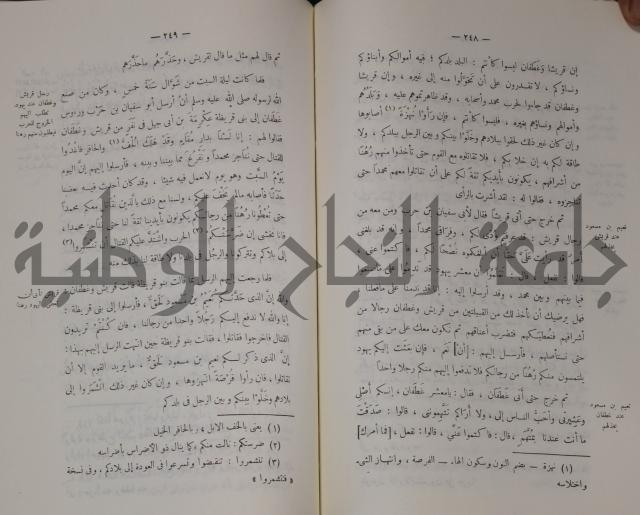 — ٢٤٨ —
إن قريشا وغطفان ليسوا كأنتم : البلد بلدكم ؛ فيه أموالكم وأبناؤكم
ونساؤكم ، لا تقدرون على أن تحولوا منه إلى غيره ، وإن قريشا
وغطفان قد جاءوا لحرب محمد وأصحابه ، وقد ظاهرتموهم عليه ، وبلدهم
وأموالهم ونساؤهم بغيره ، فليسوا كأنتم ، فإن رأوا نهزة (١) أصابوها
وإن كان غير ذلك لحقوا ببلادهم وخلوا بينكم وبين الرجل ببلدكم ، ولا
طاقة لكم به إن خلا بكم ، فلا تقاتلوا مع القوم حتى تأخذوا منهم رهنا
من أشرافهم ، يكونون بأيديكم ثقة لكم على أن تقاتلوا معهم محمدا حتى
تناجزوه ، فقالوا له : لقد أشرت بالرأى
نعيم بن مسعود
عند قريش
ثم خرج حتى أتى قريشا فقال لأبى سفيان بن حرب ومن معه من
رجال قريش : قد عرفتم
وفراقى محمدا ، وإنه قد بلغنى
أمر قد رأيت على
أن أبلغكموه نصحا لكم ، فاكتموا عنى
معشر يهود قد ندموا على ما صنعوا
فيما بينهم وبين محمد ، وقد أرسلوا إليه : إنا قد ندمنا على ما فعلنا ،
فهل يرضيك أن نأخذ لك من القبيلتين من قريش وغطفان رجالا من
أشرافهم فنعطيكهم فتضرب أعناقهم ثم نكون معك على من بقى منهم
حتى نستأصلهم ، فأرسل إليهم : [أن] نعم ، فإن بعثت إليكم يهود
يلتمسون منكم رهنا من رجالكم فلا تدفعوا إليهم منكم رجلا واحدا
نعيم بن مسعود
عند غطفان
ثم خرج حتى أتى غطفان ، فقال : يا معشر غطفان ، إنكم أصلى
وعشيرتى وأحب الناس إلى ، ولا أراكم تتهموننى ، قالوا : صدقت
ما أنت عندنا بمتهم ، قال : فاكتموا عنى ، قالوا : نفعل ، [فما أمرك]
(١) نهزة — بضم النون وسكون الهاء — الفرصة ، وانتهاز الشىء
واختلاسه
— ٢٤٩ —
ثم قال لهم مثل ما قال لقريش ، وحذرهم ما حذرهم
رجال قريش
وغطفان عند يهود
تطلب إليهم
الخروج للحرب
فيطلبون منهم رهنا
فلما كانت ليلة السبت من شوال سنة خمس ، وكان من صنع
الله لرسوله صلى الله عليه وسلم أن أرسل أبو سفيان بن حرب ورءوس
غطفان إلى بنى قريظة عكرمة بن أبى جهل فى نفر من قريش وغطفان
فقالوا لهم : إنا لسنا بدار مقام ، وقد هلك الخف (١) والحافر فاغدوا
للقتال حتى نناجز محمدا ونفرغ مما بيننا وبينه ، فأرسلوا إليهم إن اليوم
يوم السبت وهو يوم لا نعمل فيه شيئا ، وقد كان أحدث فيه بعضنا
حدثا فأصابه ما لم يخف عليكم ، ولسنا مع ذلك بالذين نقاتل معكم محمدا
حتى تعطونا رهنا من رجالكم يكونون بأيدينا ثقة لنا حتى نناجز محمدا ،
فإنا نخشى إن ضرستكم (٢) الحرب واشتد عليكم القتال أن تنشمروا (٣)
إلى بلادكم وتتركونا والرجل فى بلدنا ولا طاقة لنا بذلك منه
فلما رجعت إليهم الرسل بما قالت بنو قريظة قالت قريش وغطفان :
والله إن الذى حدثكم نعيم بن مسعود لحق ، فأرسلوا إلى بنى قريظة :
إنا والله لا ندفع إليكم رجلا واحدا من رجالنا ، فان كنتم تريدون
القتال فاخرجوا فقاتلوا ، فقالت بنو قريظة حين انتهت الرسل إليهم بهذا :
إن الذى ذكر لكم نعيم بن مسعود لحق ، ما يريد القوم إلا أن
تقاتلوا ، فان رأوا فرصة انتهزوها ، وإن كان غير ذلك انشمروا إلى
بلادهم وخلوا بينكم وبين الرجل فى بلدكم
(١) يعنى بالخف الابل ، وبالحافر الخيل
(٢) ضرستكم : نالت منكم ، كما ينال ذو الأضراس بأضراسه
(٣) تنشمروا : تنقبضوا وتسرعوا فى العودة إلى بلادكم ، وفى نسخة
« فتشمروا »
جامعة النجاح الوطنية